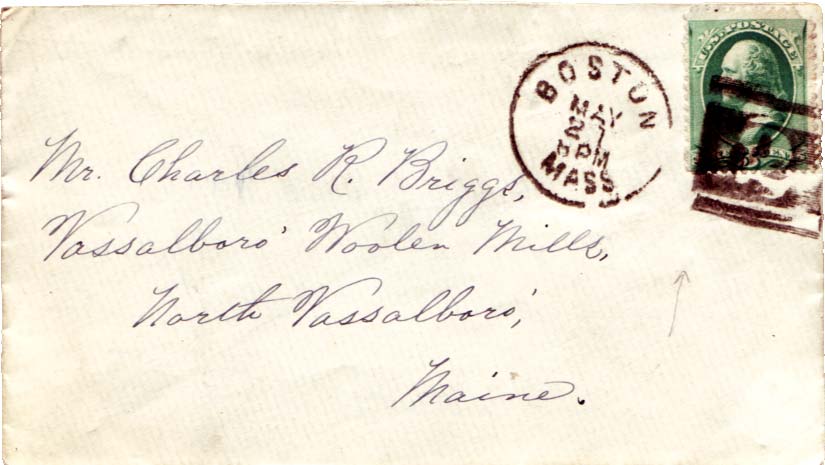 U.S. POSTAGE
BOSTON
MAY
27
PM
MASS
Mr. Charles R. Briggs,
Vassalboro' Woolen Mills,
North Vassalboro',
Maine.